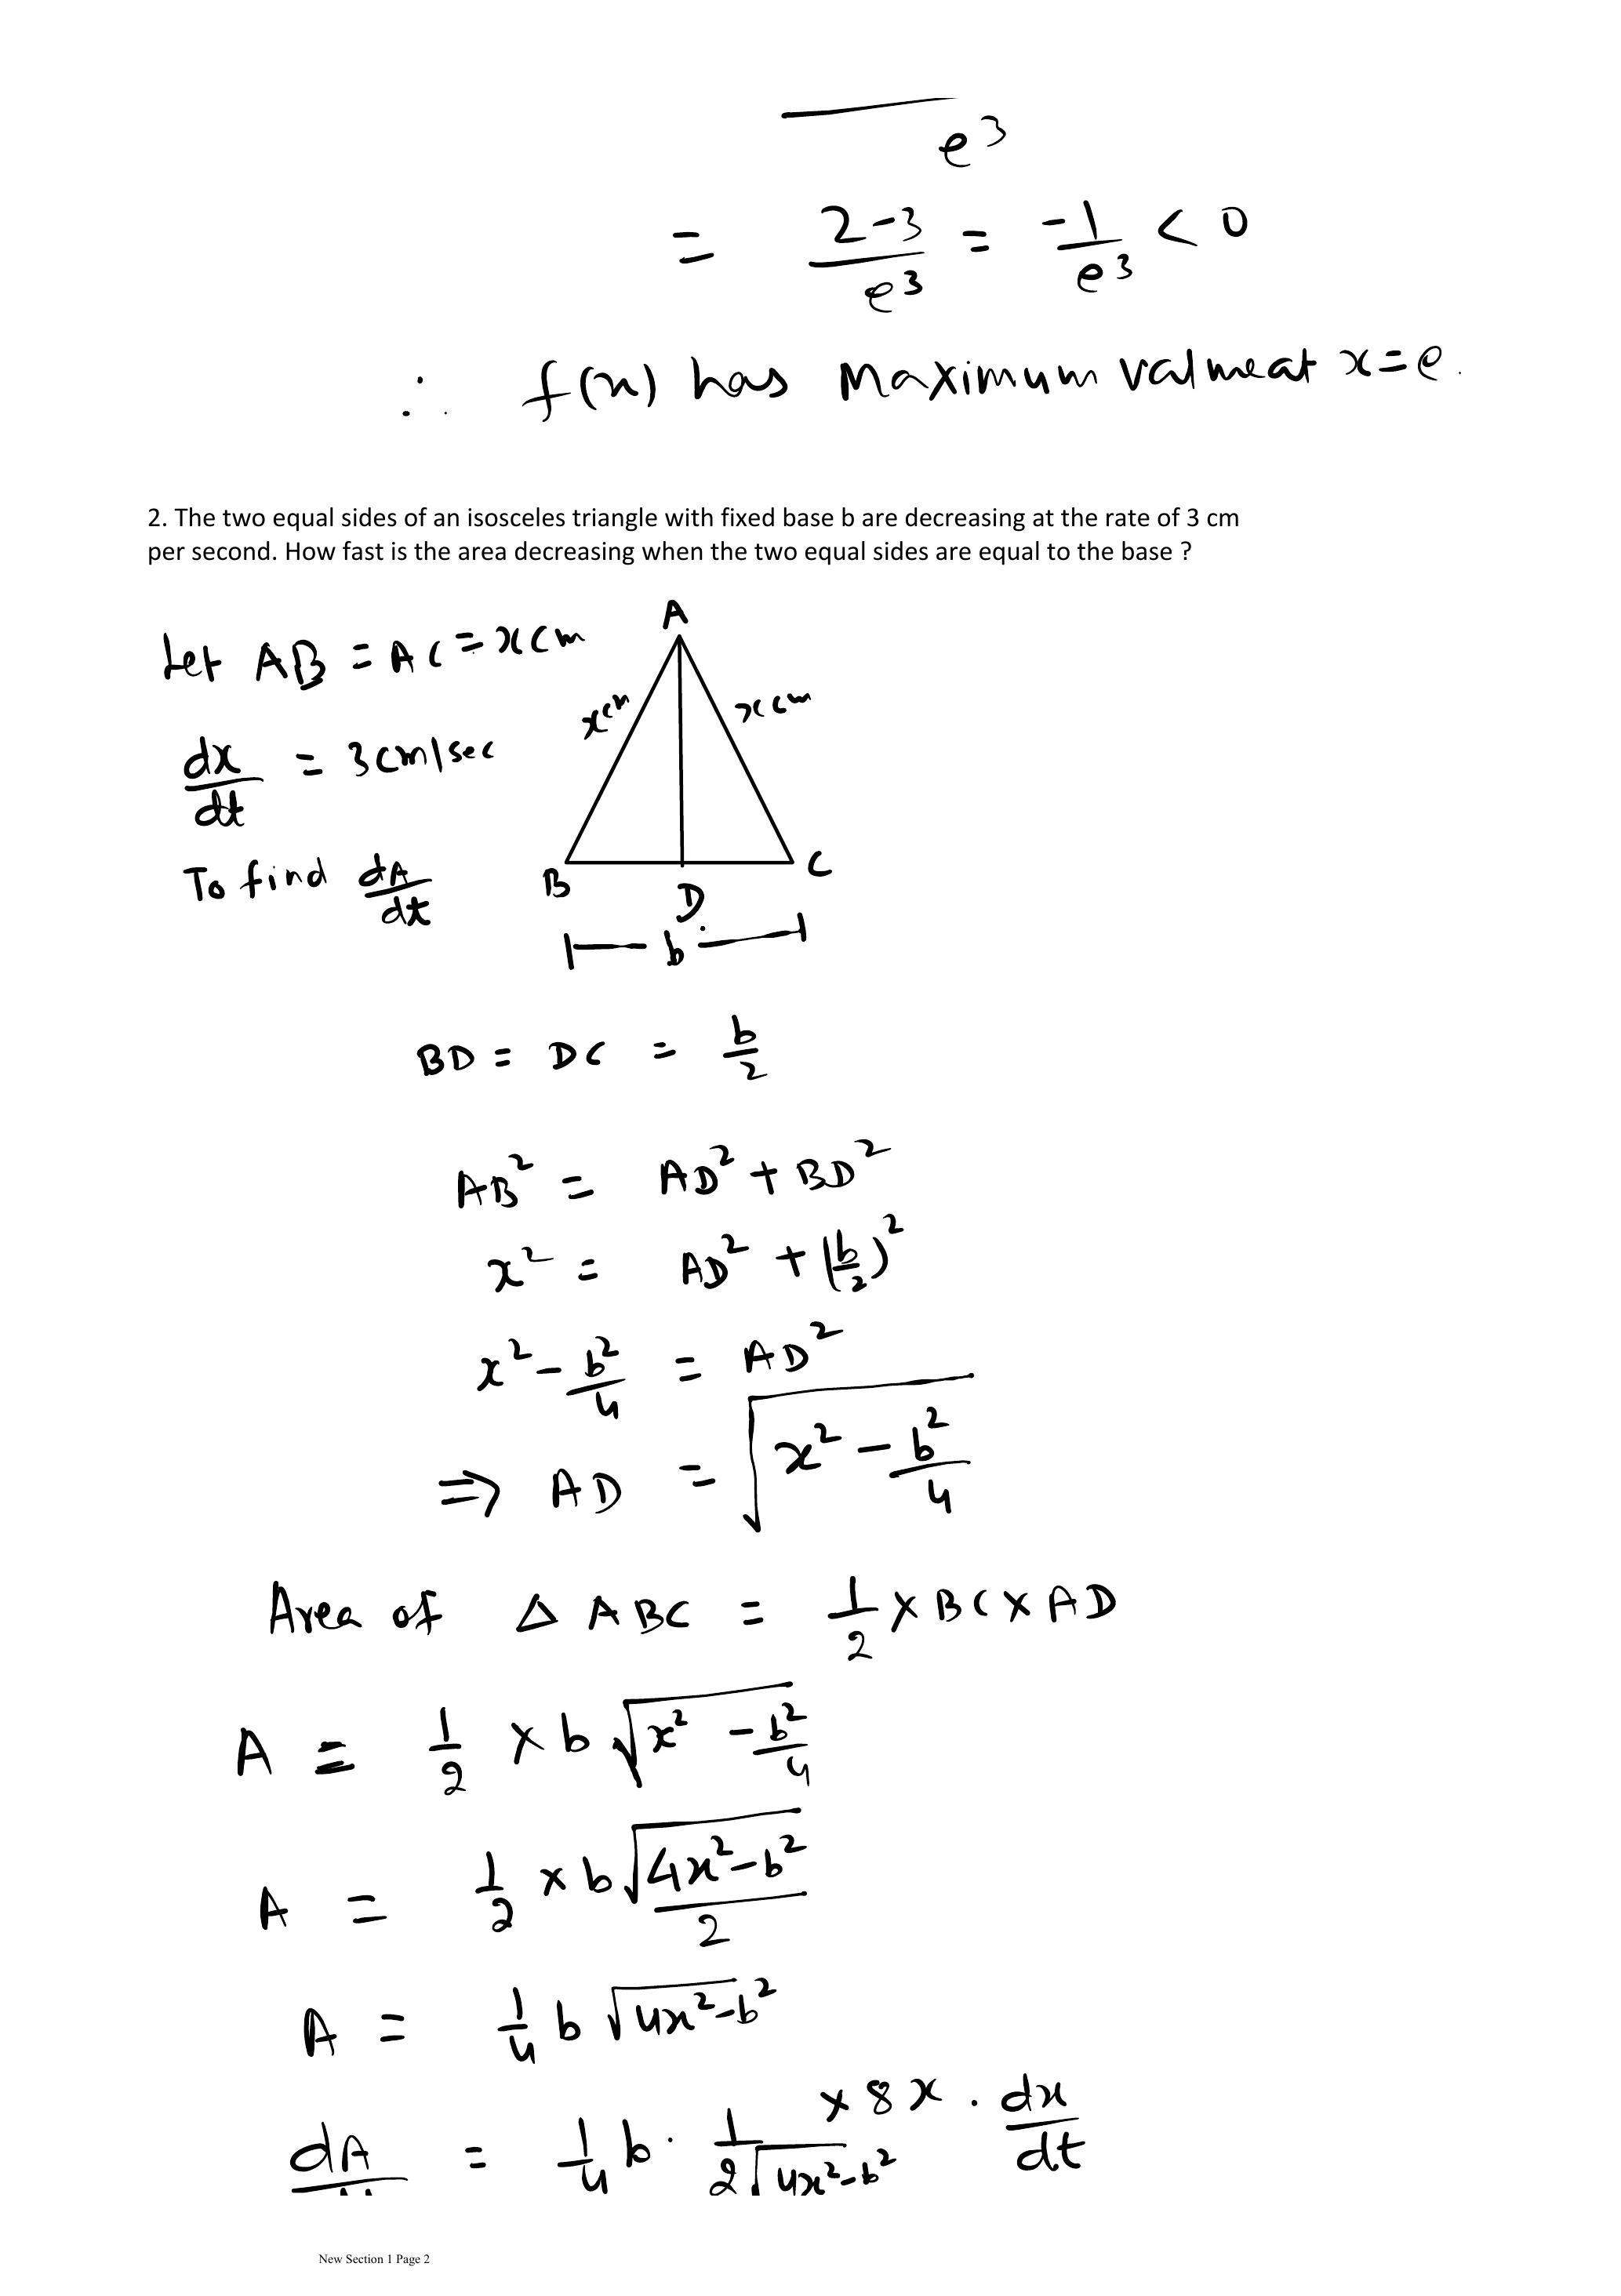 e³
= (2-3)/e³ = -1/e³ < 0
∴ f(x) has Maximum value at x=e.
2. The two equal sides of an isosceles triangle with fixed base b are decreasing at the rate of 3 cm
per second. How fast is the area decreasing when the two equal sides are equal to the base ?
Let AB = AC = x cm
A
x cm
x cm
dx/dt = 3cm/sec
To find dA/dt
B
D
C
b
BD = DC = b/2
AB² = AD² + BD²
x² = AD² + (b/2)²
x² - b²/4 = AD²
⇒ AD = √(x² - b²/4)
Area of Δ ABC = 1/2 × BC × AD
A = 1/2 × b √(x² - b²/4)
A = 1/2 × b √(4x²-b²)/2
A = 1/4 b √(4x²-b²)
dA = 1/4 b · 1/(2√(4x²-b²)) × 8x · dx/dt
New Section 1 Page 2